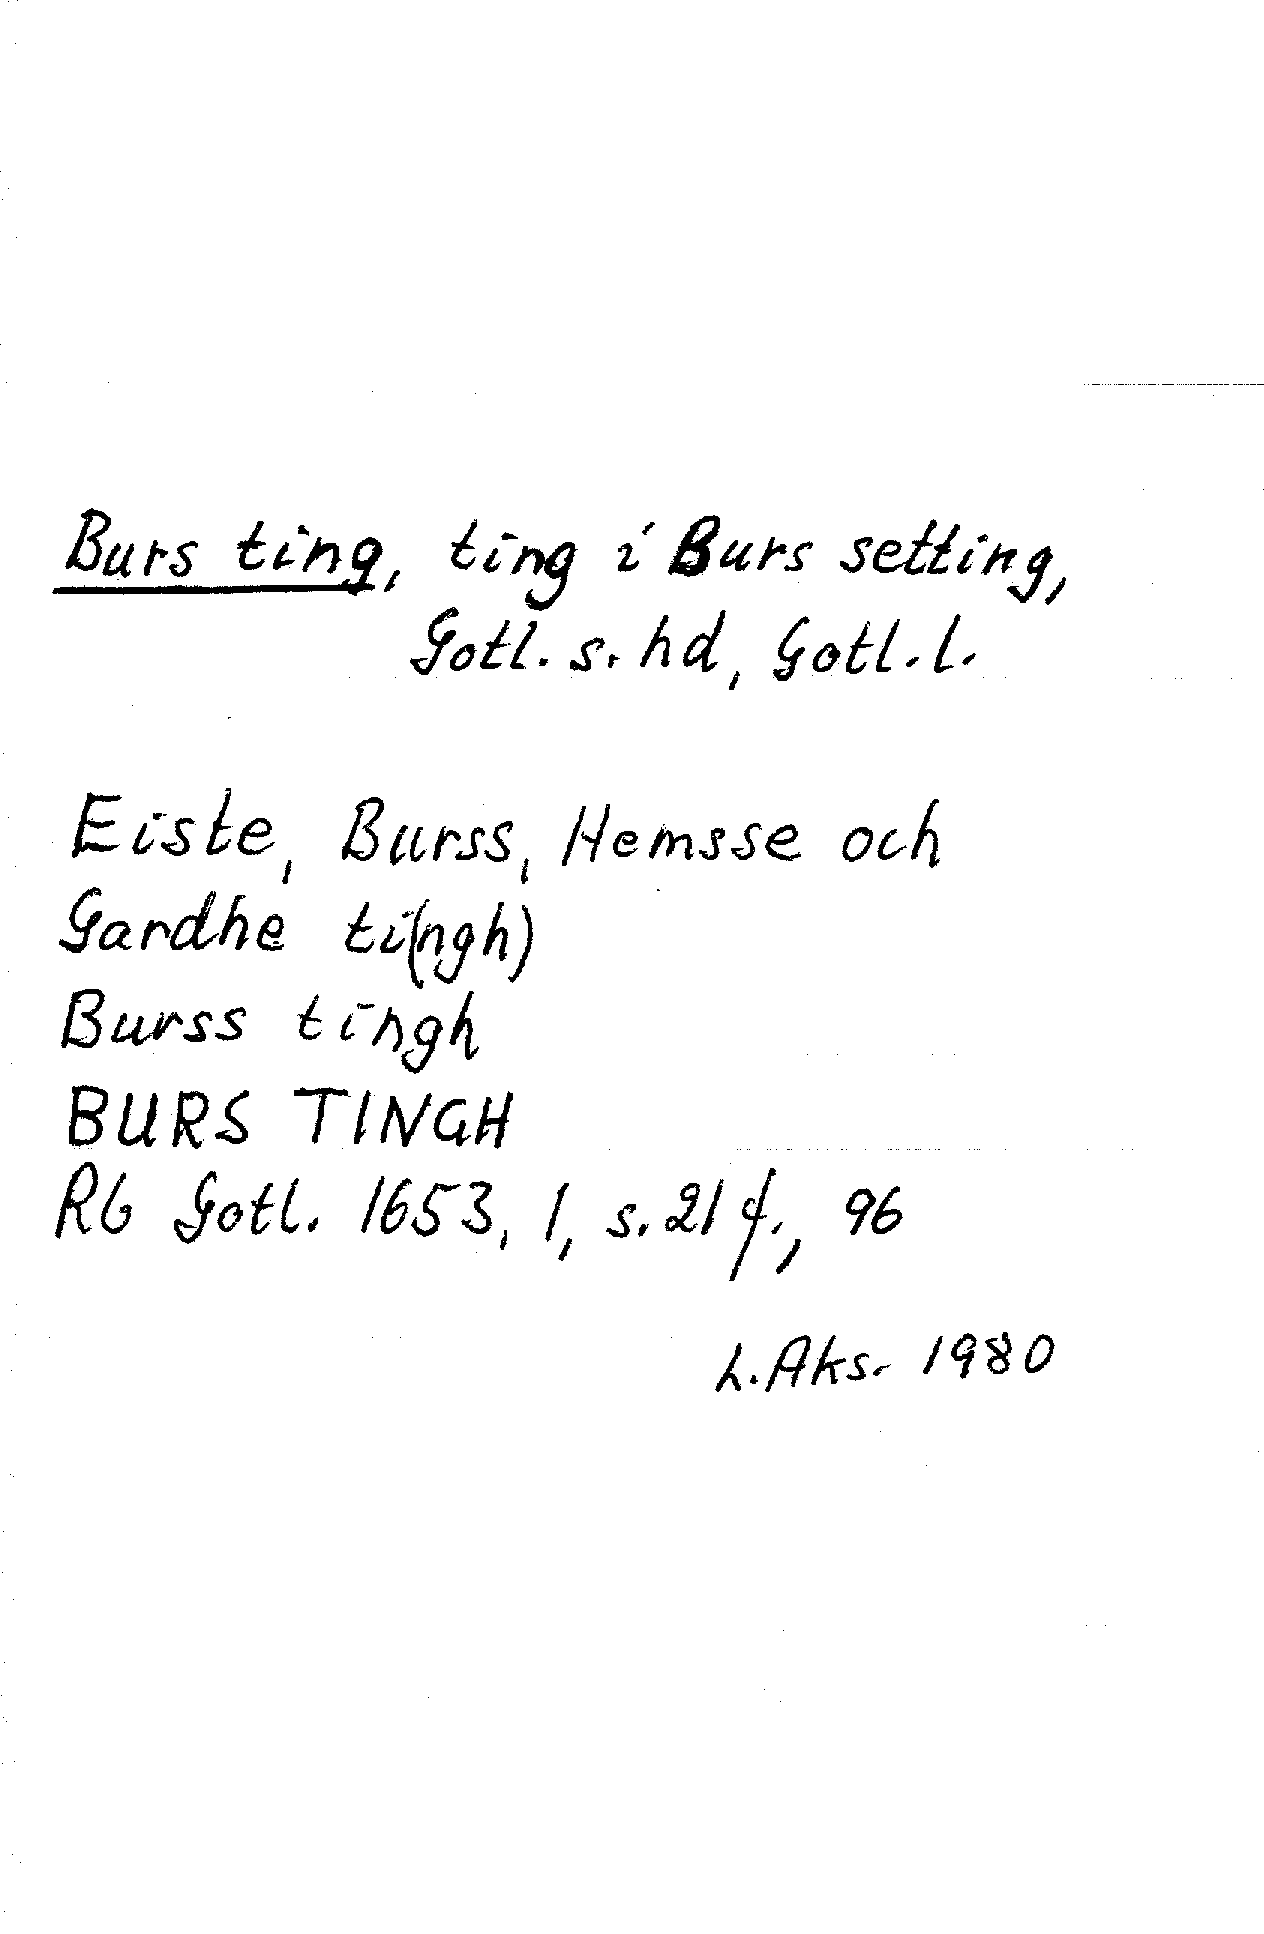 Burs ting, ting i Burs setting,
Gotl. s. hd, Gotl. l.
Eiste, Burss, Hemsse och
Gardhe ti(ngh)
Burss tingh
BURS TINGH
Rb Gotl. 1653, 1, s. 21 f., 96
L. Aks. 1980